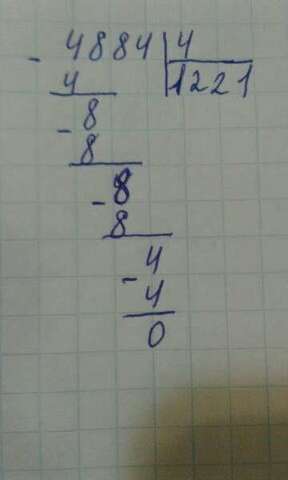 - 4884 | 4
4 1221
- 8
8
- 8
8
4
- 4
0